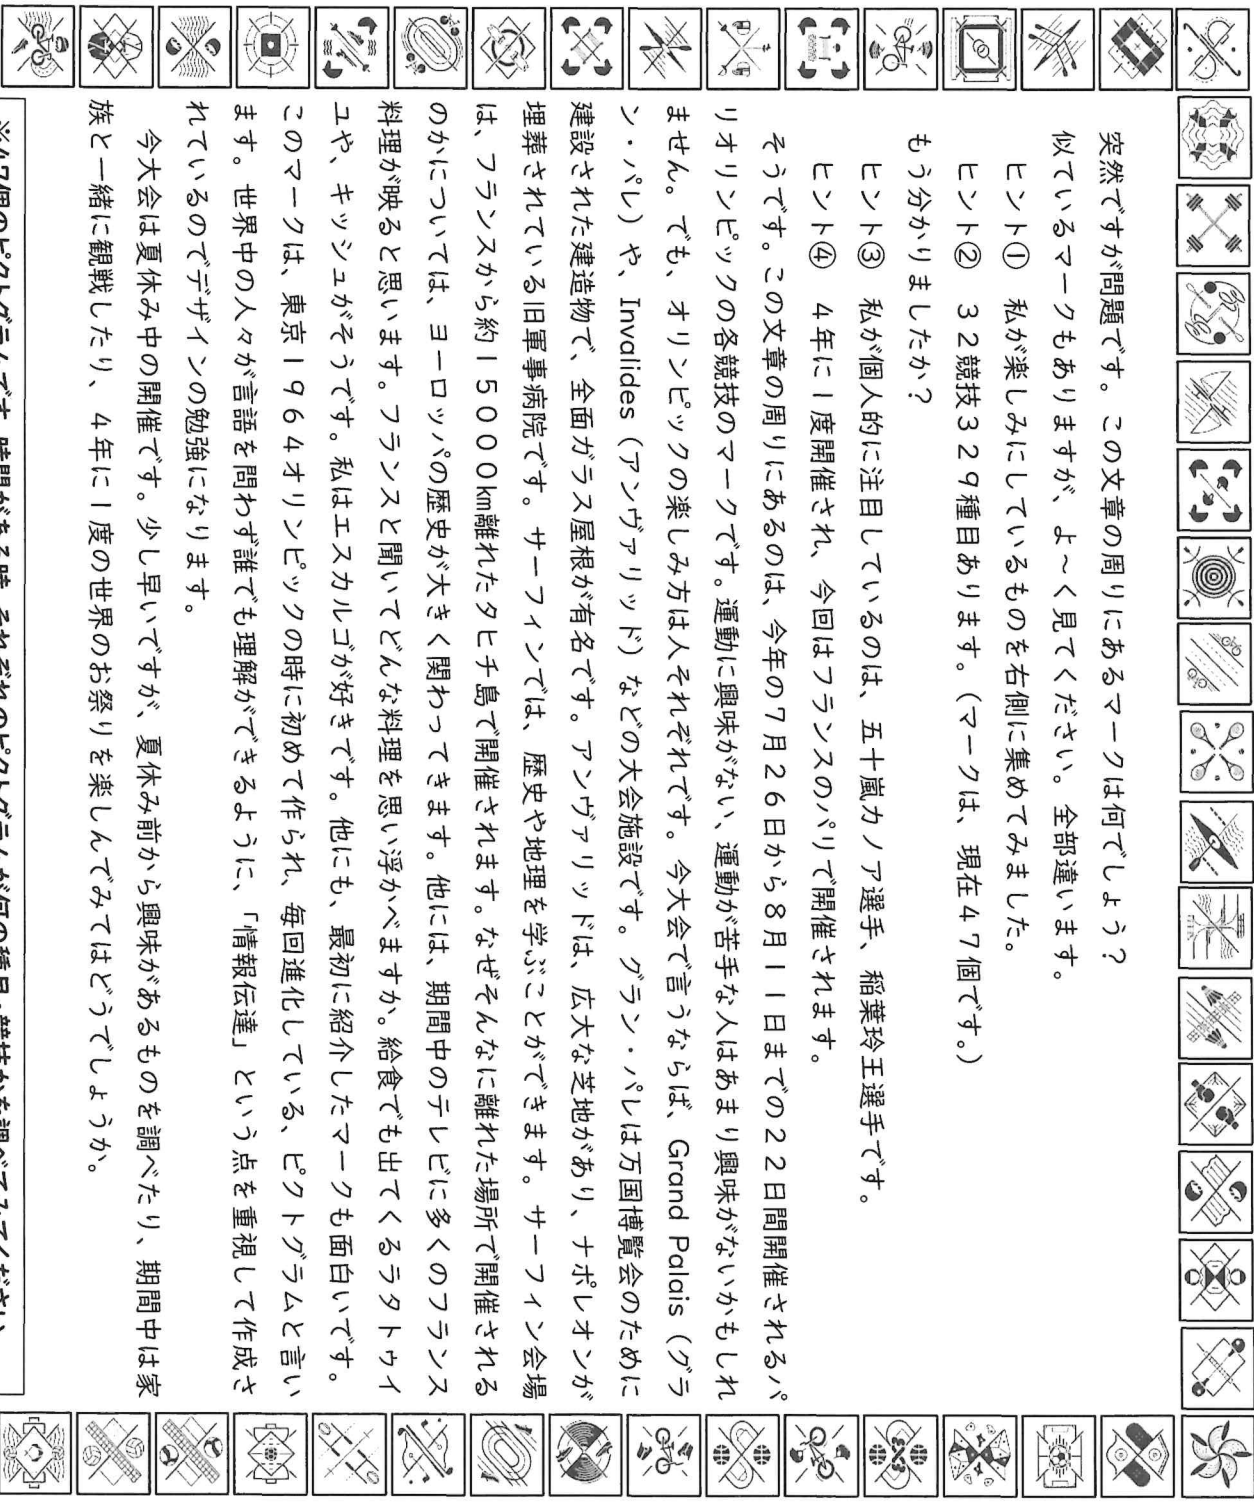 突然ですが問題です。この文章の周りにあるマークは何でしょう？
似ているマークもありますが、よ～く見てください。全部違います。
ヒント① 私が楽しみにしているものを右側に集めてみました。
ヒント② 32競技329種目あります。（マークは、現在47個です。）
もう分かりましたか？
ヒント③ 私が個人的に注目しているのは、五十嵐カノア選手、稲葉玲王選手です。
ヒント④ 4年に1度開催され、今回はフランスのパリで開催されます。
そうです。この文章の周りにあるのは、今年の7月26日から8月11日までの22日間開催されるパ
リオリンピックの各競技のマークです。運動に興味がない、運動が苦手な人はあまり興味がないかもしれ
ません。でも、オリンピックの楽しみ方は人それぞれです。今大会で言うならば、Grand Palais（グラ
ン・パレ）や、Invalides（アンヴァリッド）などの大会施設です。グラン・パレは万国博覧会のために
建設された建造物で、全面ガラス屋根が有名です。アンヴァリッドは、広大な芝地があり、ナポレオンが
埋葬されている旧軍事病院です。サーフィンでは、歴史や地理を学ぶことができます。サーフィン会場
は、フランスから約15000km離れたタヒチ島で開催されます。なぜそんなに離れた場所で開催される
のかについては、ヨーロッパの歴史が大きく関わってきます。他には、期間中のテレビに多くのフランス
料理が映ると思います。フランスと聞いてどんな料理を思い浮かべますか。給食でも出てくるラタトゥイ
ユや、キッシュがそうです。私はエスカルゴが好きです。他にも、最初に紹介したマークも面白いです。
このマークは、東京1964オリンピックの時に初めて作られ、毎回進化している、ピクトグラムと言い
ます。世界中の人々が言語を問わず誰でも理解ができるように、「情報伝達」という点を重視して作成さ
れているのでデザインの勉強になります。
今大会は夏休み中の開催です。少し早いですが、夏休み前から興味があるものを調べたり、期間中は家
族と一緒に観戦したり、4年に1度の世界のお祭りを楽しんでみてはどうでしょうか。
※47個のピクトグラムです。時間がある時、それぞれのピクトグラムが何の種目・競技かを調べてみてください